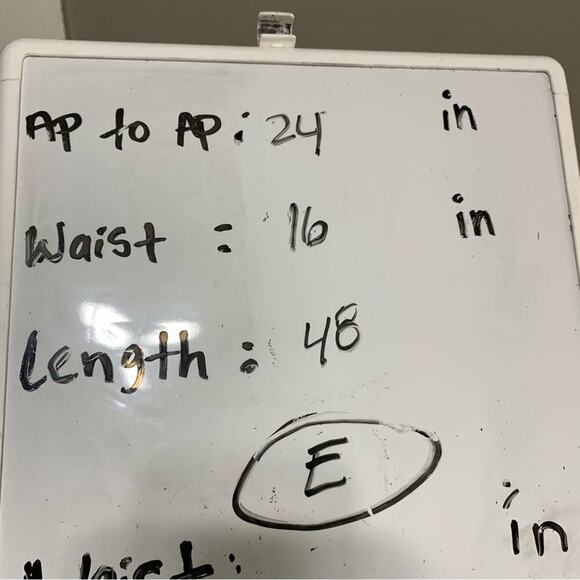 AP to AP: 24 in
Waist : 16 in
Length : 48
E
Waist: in